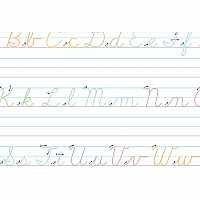 Bb Cc Dd Ee Ff
Kk Ll Mm Nn O
Ss Tt Uu Vv Ww